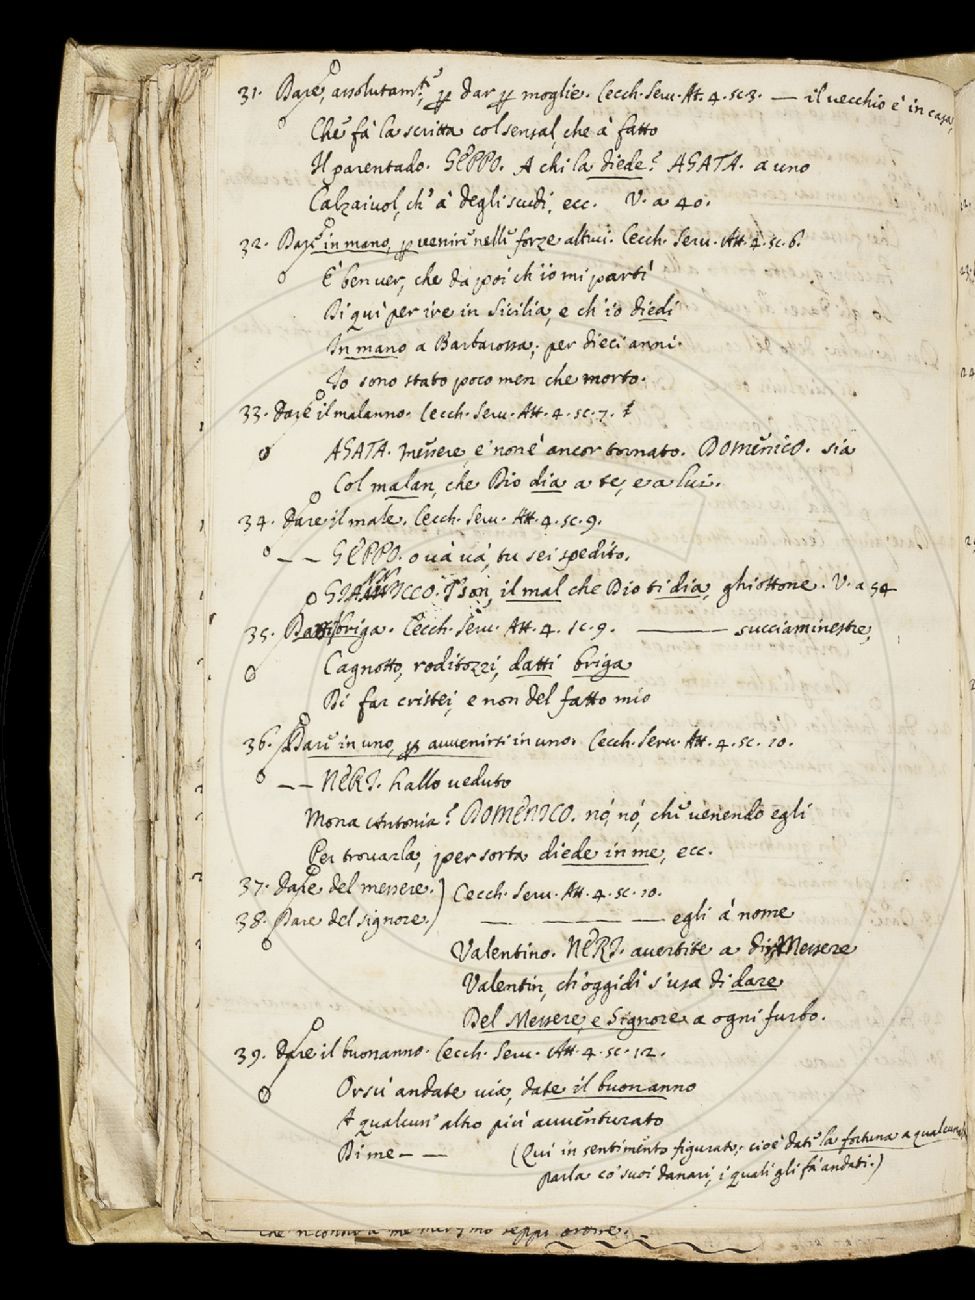 31. Dare, assolutam.te, p dar p moglie. Cecch. Serv. At. 4. sc. 3. — il vecchio è in casa,
Che fa la scritta col sensal, che à fatto
Il parentado. GEPPO. A chi la diede? AGATA. a uno
Calzaiuol, ch' à degli scudi, ecc. V. a 40.
32. Dare in mano, p venire nelle forze altrui. Cecch. Serv. Att. 4. sc. 6.
E' ben ver, che da poi ch' io mi parti'
Di qui per ire in Sicilia, e ch' io diedi
In mano a Barbarossa; per dieci anni.
Io sono stato poco men che morto.
33. Dare il malanno. Cecch. Serv. Att. 4. sc. 7.
AGATA. Messere, e' non è ancor tornato. DOMENICO. sia
Col malan, che Dio dia a te, e a lui.
34. Dare il male. Cecch. Serv. Att. 4. sc. 9.
— — GEPPO. o và và, tu sei spedito.
il mal che Dio ti dia, ghiottone. V. a 54
35. briga. Cecch. Serv. Att. 4. sc. 9. — succiaminestre,
Cagnotto, roditozzi, datti briga
Di far cristei, e non del fatto mio
36. Dare in uno, p avvenirsi in uno. Cecch. Serv. Att. 4. sc. 10.
— — NERI. hallo veduto
Mona Antonia? DOMENICO. nò, nò, che venendo egli
Per trovarla, per sorta diede in me, ecc.
37. Dare del messere.) Cecch. Serv. Att. 4. sc. 10.
38. Dare del signore.) — — — egli à nome
Valentino. NERI. avertite a dir Messere
Valentin, ch' oggidì s' usa di dare
Del Messere, e Signore a ogni furbo.
39. Dare il buonanno. Cecch. Serv. Att. 4. sc. 12.
Orsù andate via, date il buonanno
A qualcun' altro più avventurato
Di me — — (Qui in sentimento figurato; cioè date la fortuna a qualcuno
parla co' suoi danari, i quali gli fà andati.)